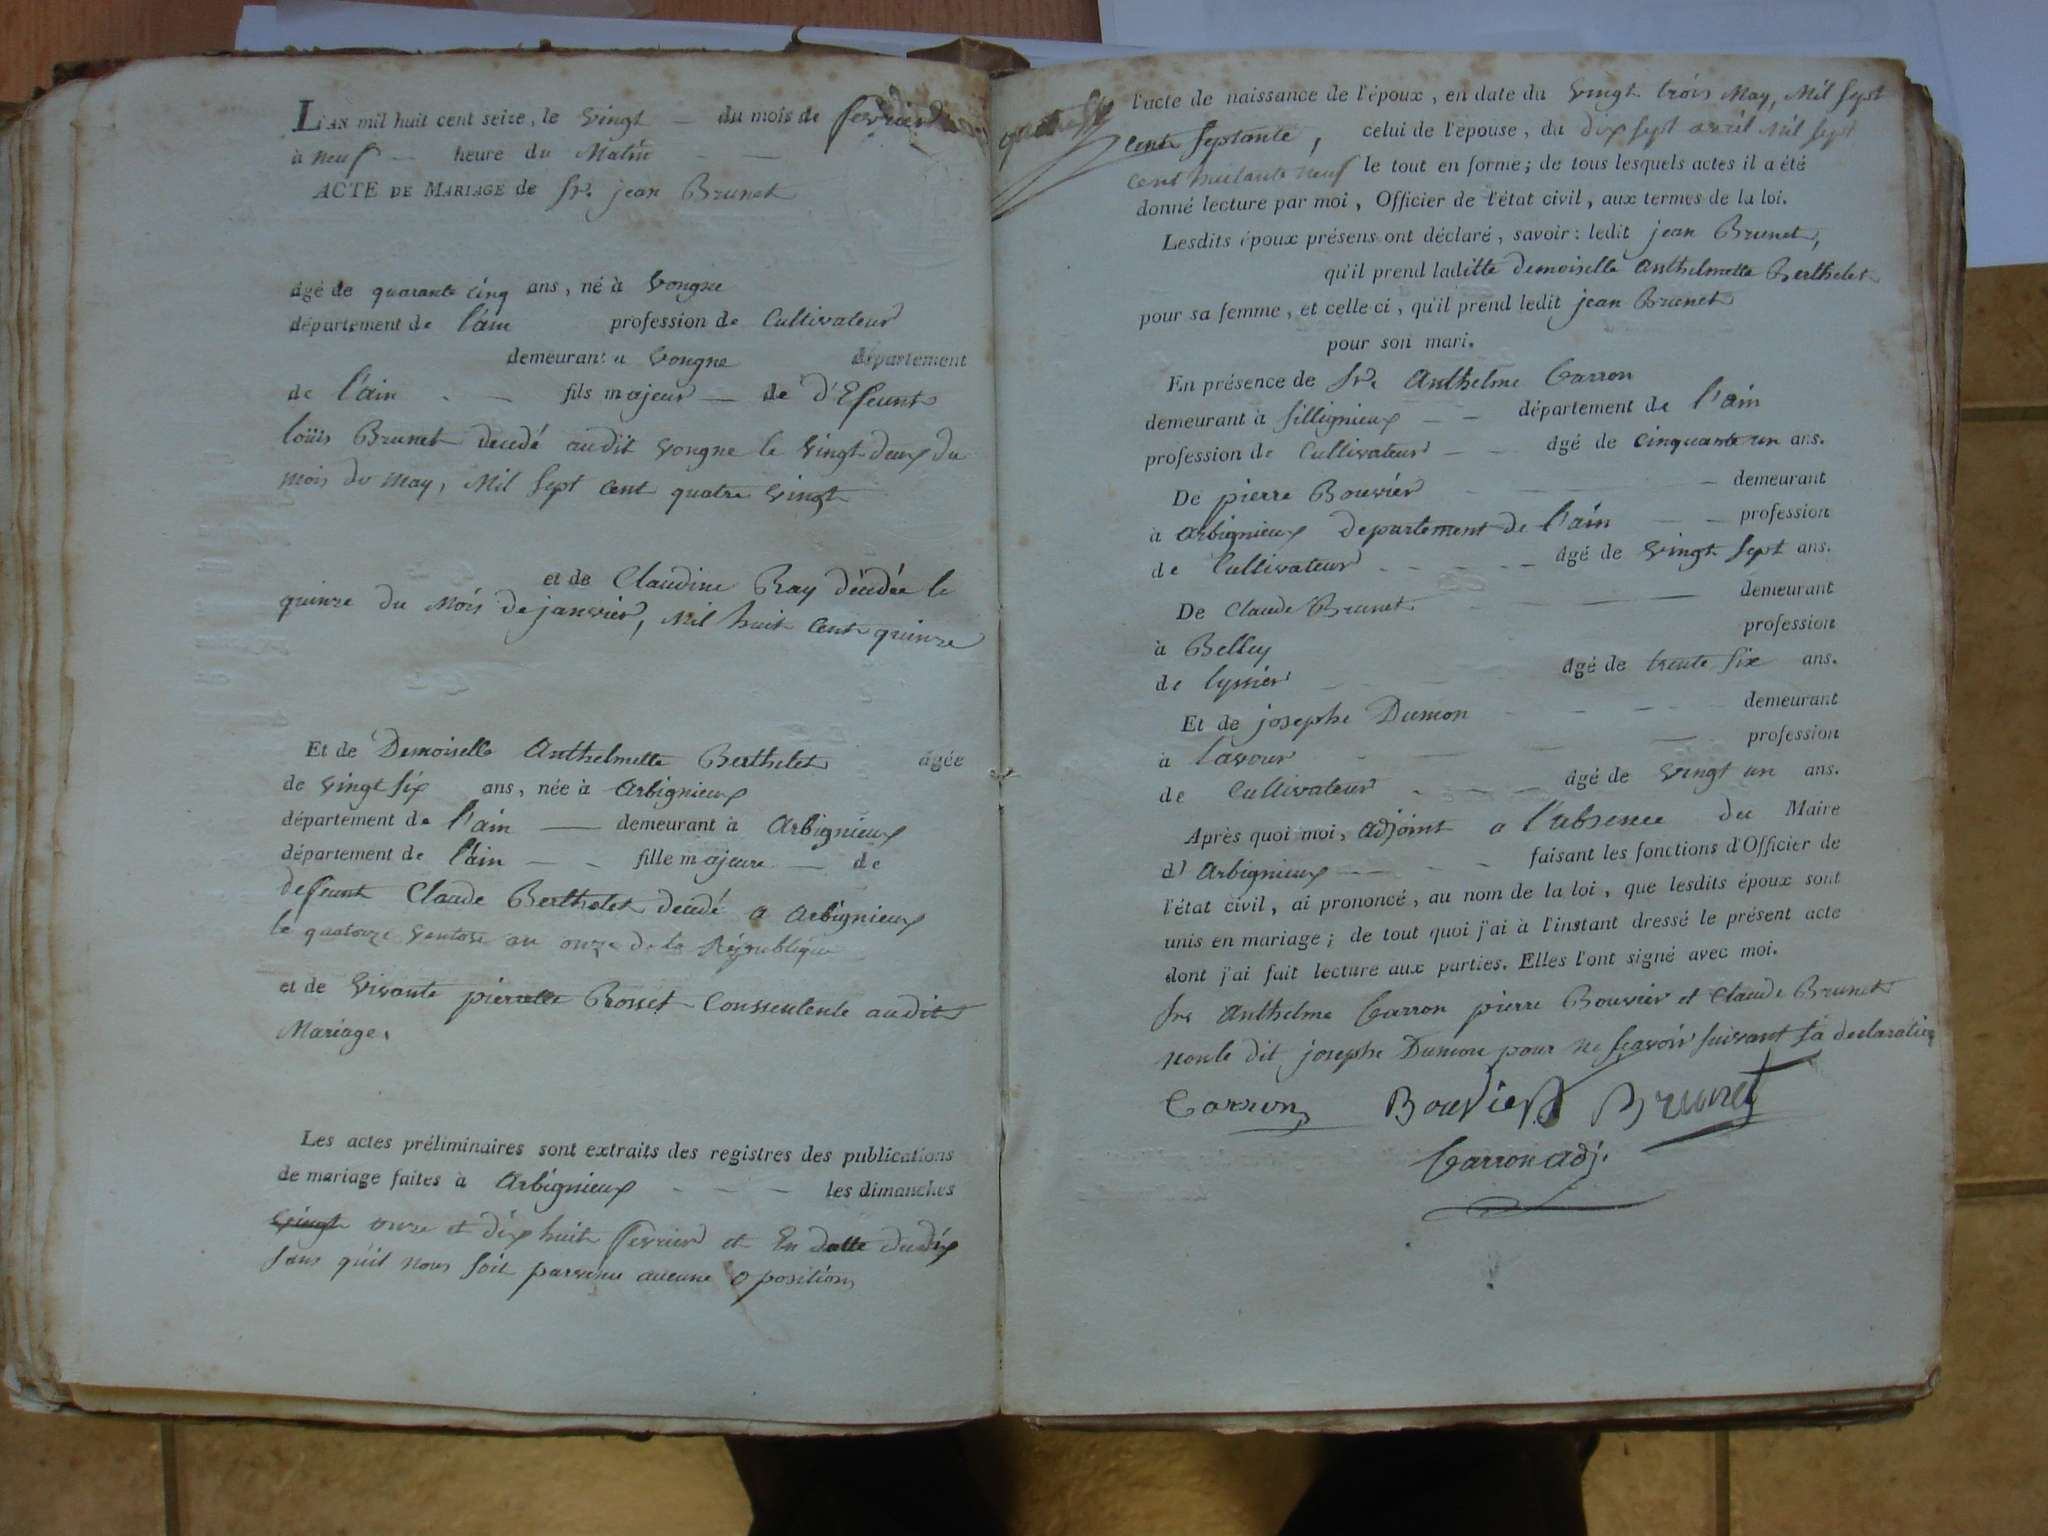 L'AN mil huit cent seize, le vingt du mois de fevrier
à neuf heure du Matin
ACTE DE MARIAGE de Sr. jean Brunet
âgé de quarante cinq ans, né à Vongne
département de l'ain profession de Cultivateur
demeurant a Vongne département
de l'ain fils majeur de d'Efeunt
loüis Brunet decedé audit Vongne le vingt deux du
mois de may, Mil Sept cent quatre vingt
et de Claudine Ray décédée le
quinze du Mois de janvier, Mil huit Cent quinze
Et de Demoiselle Anthelmette Berthelet âgée
de vingt six ans, née à Arbignieux
département de l'ain demeurant à Arbignieux
département de l'ain fille majeure de
deffeunt Claude Berthelet decedé a Arbignieux
le quatorze ventose an onze de la Republique
et de Vivante pierrette Rosset Conssentente au dit
Mariage.
Les actes préliminaires sont extraits des registres des publications
de mariage faites à Arbignieux les dimanches
onze et dix huit fevrier et En datte dudix
sans qu'il nous soit parvenu aucune opositions
l'acte de naissance de l'époux, en date du vingt trois May, Mil Sept
cent Septante, celui de l'épouse, du dix sept avril Mil Sept
cent huitante neuf le tout en forme; de tous lesquels actes il a été
donné lecture par moi, Officier de l'état civil, aux termes de la loi.
Lesdits époux présens ont déclaré, savoir: ledit jean Brunet,
qu'il prend laditte demoiselle Anthelmette Berthelet
pour sa femme, et celle-ci, qu'il prend ledit jean Brunet
pour son mari.
En présence de Sr. Anthelme Carron
demeurant à Sillignieux département de l'ain
profession de Cultivateur âgé de cinquante un ans.
De pierre Bouvier demeurant
à Arbignieux departement de l'ain profession
de Cultivateur âgé de vingt sept ans.
De Claude Brunet demeurant
à Belley profession
de lyssier âgé de trente six ans.
Et de josephe Dumon demeurant
à Lavour profession
de Cultivateur âgé de vingt un ans.
Après quoi moi, adjoint a l'absence du Maire
d' Arbignieux faisant les fonctions d'Officier de
l'état civil, ai prononcé, au nom de la loi, que lesdits époux sont
unis en mariage; de tout quoi j'ai à l'instant dressé le présent acte
dont j'ai fait lecture aux parties. Elles l'ont signé avec moi.
Srs Anthelme Carron pierre Bouvier et Claude Brunet
non le dit josephe Dumon pour ne scavoir suivant sa declaration
Carron Bouvier Brunet
Carron adj.